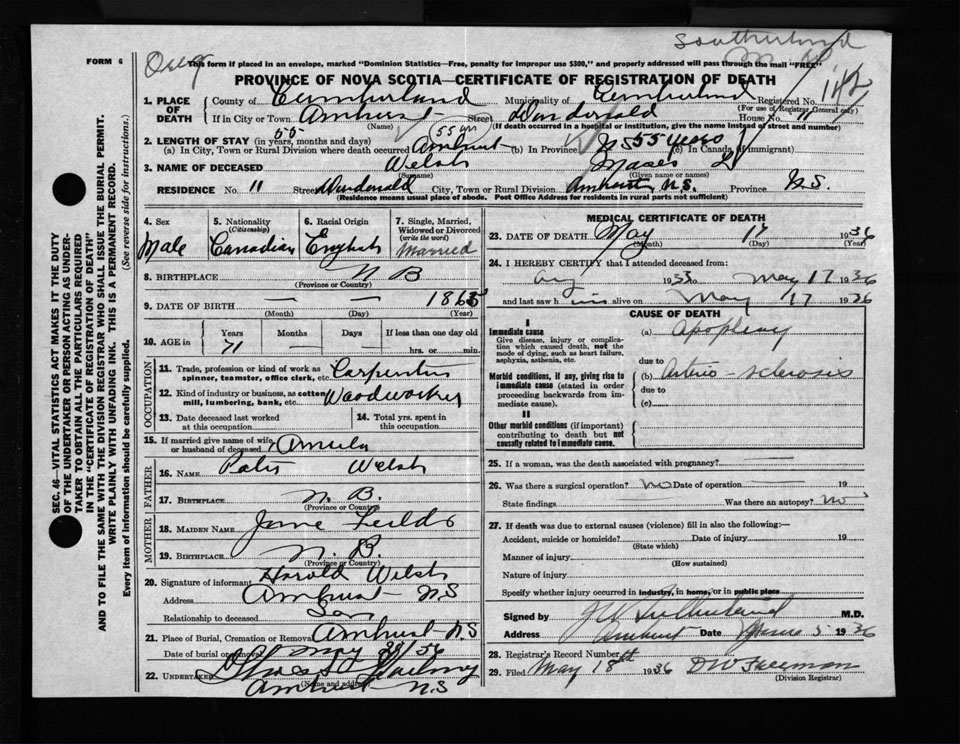 Southerland
FORM 6
This form if placed in an envelope, marked "Dominion Statistics—Free, penalty for improper use $300," and properly addressed will pass through the mail "FREE"
PROVINCE OF NOVA SCOTIA—CERTIFICATE OF REGISTRATION OF DEATH
1. PLACE OF DEATH
County of Cumberland Municipality of Cumberland Registered No. 142
(For use of Registrar General only)
If in City or Town Amherst Street House No. 11
(Name) (If death occurred in a hospital or institution, give the name instead of street and number)
2. LENGTH OF STAY (in years, months and days)
(a) In City, Town or Rural Division where death occurred 55 Amherst 55 yrs (b) In Province N S 55 years (c) In Canada (if immigrant)
3. NAME OF DECEASED Welsh Moses
(Surname) (Given name or names)
RESIDENCE No. 11 Street City, Town or Rural Division Amherst, N.S. Province N.S.
(Residence means usual place of abode. Post Office Address for residents in rural parts not sufficient)
4. Sex Male
5. Nationality (Citizenship) Canadian
6. Racial Origin English
7. Single, Married, Widowed or Divorced (write the word) Married
8. BIRTHPLACE N B
(Province or Country)
9. DATE OF BIRTH — — 1865
(Month) (Day) (Year)
10. AGE in Years 71 Months — Days — If less than one day old
hrs. or min.
OCCUPATION
11. Trade, profession or kind of work as spinner, teamster, office clerk, etc. Carpenter
12. Kind of industry or business, as cotton mill, lumbering, bank, etc. Woodworker
13. Date deceased last worked at this occupation
14. Total yrs. spent in this occupation
15. If married give name of wife or husband of deceased
FATHER
16. NAME Welsh
17. BIRTHPLACE N. B.
(Province or Country)
MOTHER
18. MAIDEN NAME Jane
19. BIRTHPLACE N. B.
(Province or Country)
20. Signature of informant Harold Welsh
Address Amherst N S
Relationship to deceased Son
21. Place of Burial, Cremation or Removal Amherst N S
Date of burial or removal May
22. UNDERTAKER
(Name and address)
Amherst N.S
MEDICAL CERTIFICATE OF DEATH
23. DATE OF DEATH May 17 1936
(Month) (Day) (Year)
24. I HEREBY CERTIFY that I attended deceased from:
Aug 1933 to May 17 1936
and last saw him alive on May 17 1936
CAUSE OF DEATH
I
Immediate cause
Give disease, injury or complication which caused death, not the mode of dying, such as heart failure, asphyxia, asthenia, etc.
(a) Apoplexy
due to
Morbid conditions, if any, giving rise to immediate cause (stated in order proceeding backwards from immediate cause).
(b) Arterio-sclerosis
due to
(c)
II
Other morbid conditions (if important) contributing to death but not causally related to immediate cause.
25. If a woman, was the death associated with pregnancy? —
26. Was there a surgical operation? no Date of operation — 19
State findings Was there an autopsy? no
27. If death was due to external causes (violence) fill in also the following:—
Accident, suicide or homicide? Date of injury 19
(State which)
Manner of injury
(How sustained)
Nature of injury
Specify whether injury occurred in industry, in home, or in public place
Signed by M.D.
Address Amherst Date June 5 1936
28. Registrar's Record Number
29. Filed May 18th 1936 D W Freeman
(Division Registrar)
SEC. 46—VITAL STATISTICS ACT MAKES IT THE DUTY
OF THE UNDERTAKER OR PERSON ACTING AS UNDER-
TAKER TO OBTAIN ALL THE PARTICULARS REQUIRED
IN THE "CERTIFICATE OF REGISTRATION OF DEATH"
AND TO FILE THE SAME WITH THE DIVISION REGISTRAR WHO SHALL ISSUE THE BURIAL PERMIT.
WRITE PLAINLY WITH UNFADING INK. THIS IS A PERMANENT RECORD.
Every item of information should be carefully supplied. (See reverse side for instructions.)